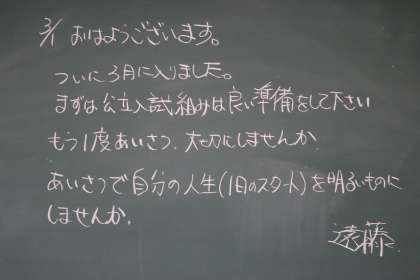 3/1 おはようございます。
ついに3月に入りました。
まずは公立入試組みは良い準備をして下さい
もう1度あいさつ、大切にしませんか
あいさつで自分の人生(1日のスタート)を明るいものに
しませんか。
遠藤